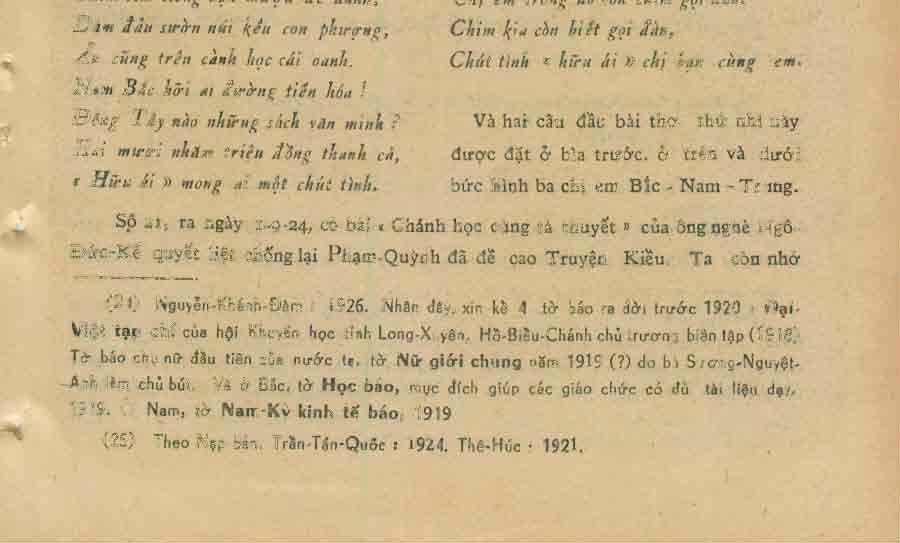 Đầm đầu sườn núi kêu con phượng,
cũng trên cành học cái oanh.
Nam Bắc hỡi ai đường tiến hóa !
Đông Tây nào những sách văn minh ?
Hai mươi nhăm triệu đồng thanh cả,
« Hữu ái » mong ai một chút tình.
Chim kia còn biết gọi đàn,
Chút tình « hữu ái » chị bạn cùng em.
Và hai câu đầu bài thơ thứ nhì này
được đặt ở bìa trước, ở trên và dưới
bức hình ba chị em Bắc - Nam - Trung.
Số 21, ra ngày 1-9-24, có bài « Chánh học cùng tà thuyết » của ông nghè Ngô
Đức-Kế quyết liệt chống lại Phạm-Quỳnh đã đề cao Truyện Kiều. Ta còn nhớ
(24) Nguyễn-Khánh-Đàm : 1926. Nhân đây, xin kể 4 tờ báo ra đời trước 1920 : Đại-
Việt tạp chí của hội Khuyến học tỉnh Long-Xuyên, Hồ-Biểu-Chánh chủ trương biên tập (1918).
Tờ báo phụ nữ đầu tiên của nước ta, tờ Nữ giới chung năm 1919 (?) do bà Sương-Nguyệt-
Ánh làm chủ bút. Và ở Bắc, tờ Học báo, mục đích giúp các giáo chức có đủ tài liệu dạy,
1919. Ở Nam, tờ Nam-Kỳ kinh tế báo, 1919
(25) Theo Trần-Tấn-Quốc : 1924. Thê-Húc : 1921.